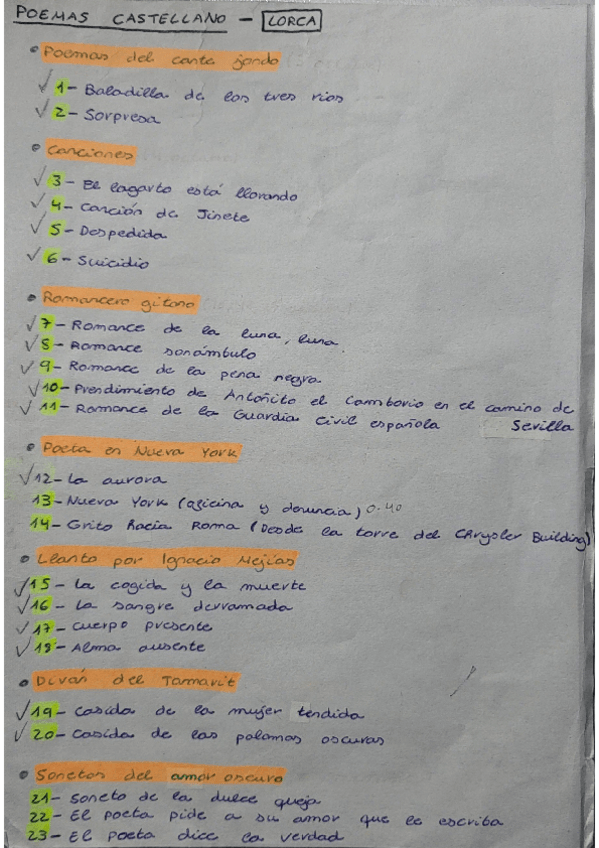 POEMAS CASTELLANO - LORCA
• Poemas del cante jondo
✓ 1- Baladilla de los tres rios
✓ 2- Sorpresa
• Canciones
✓ 3- El lagarto está llorando
✓ 4- Canción de Jinete
✓ 5- Despedida
✓ 6- Suicidio
• Romancero gitano
✓ 7- Romance de la luna, luna
✓ 8- Romance sonámbulo
✓ 9- Romance de la pena negra
✓ 10- Prendimiento de Antoñito el Camborio en el camino de
Sevilla
✓ 11- Romance de la Guardia Civil española
• Poeta en Nueva York
✓ 12- La aurora
13- Nueva York (oficina y denuncia) 0.40
14- Grito hacia Roma (Desde la torre del Chrysler Building)
• Llanto por Ignacio Mejías
✓ 15- La cogida y la muerte
✓ 16- La sangre derramada
✓ 17- Cuerpo presente
✓ 18- Alma ausente
• Diván del Tamarit
✓ 19- Casida de la mujer tendida
✓ 20- Casida de las palomas oscuras
• Sonetos del amor oscuro
21- Soneto de la dulce queja
22- El poeta pide a su amor que le escriba
23- El poeta dice la verdad